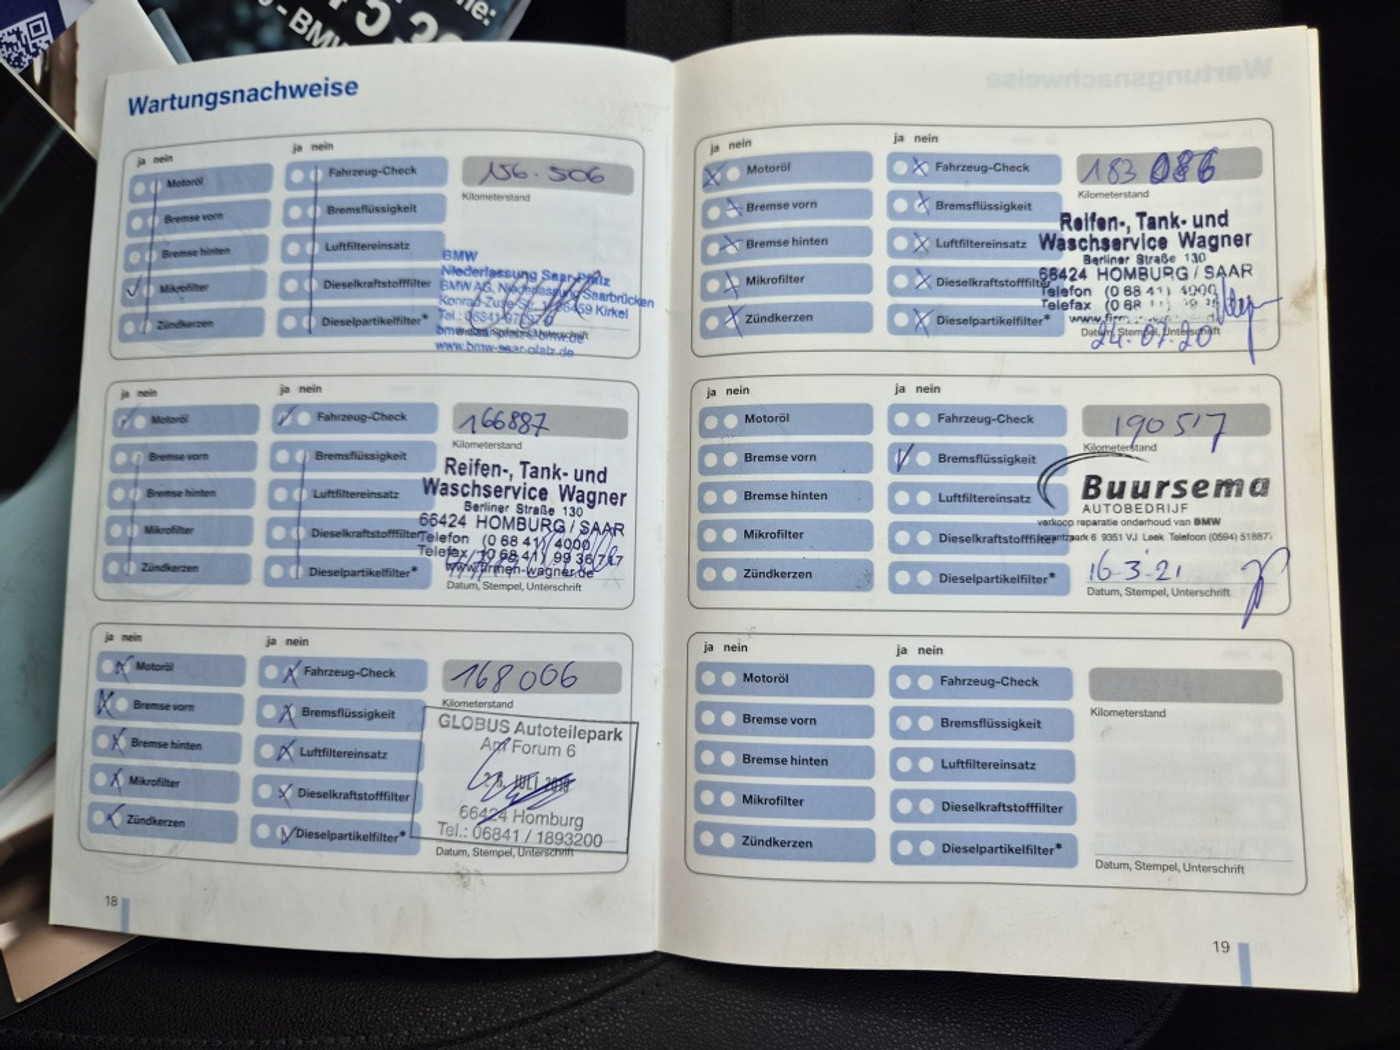 - BMW
Wartungsnachweise
ja nein
ja nein
Motoröl
Bremse vorn
Bremse hinten
Mikrofilter
Zündkerzen
Fahrzeug-Check
Bremsflüssigkeit
Luftfiltereinsatz
Dieselkraftstofffilter
Dieselpartikelfilter*
156.506
Kilometerstand
BMW
Niederlassung Saar-Pfalz
BMW AG, Niederlassung Saarbrücken
Konrad-Zuse-Str. 66459 Kirkel
www.bmw-saar-pfalz.de
ja nein
ja nein
Motoröl
Bremse vorn
Bremse hinten
Mikrofilter
Zündkerzen
Fahrzeug-Check
Bremsflüssigkeit
Luftfiltereinsatz
Dieselkraftstofffilter
Dieselpartikelfilter*
166887
Kilometerstand
Reifen-, Tank- und
Waschservice Wagner
Berliner Straße 130
66424 HOMBURG / SAAR
Telefon (0 68 41) 4000
Telefax (0 68 41) 99 36 747
www.firmen-wagner.de
Datum, Stempel, Unterschrift
ja nein
ja nein
Motoröl
Bremse vorn
Bremse hinten
Mikrofilter
Zündkerzen
Fahrzeug-Check
Bremsflüssigkeit
Luftfiltereinsatz
Dieselkraftstofffilter
Dieselpartikelfilter*
168006
Kilometerstand
GLOBUS Autoteilepark
Am Forum 6
JULI 2019
66424 Homburg
Tel.: 06841 / 1893200
Datum, Stempel, Unterschrift
18
ja nein
ja nein
Motoröl
Bremse vorn
Bremse hinten
Mikrofilter
Zündkerzen
Fahrzeug-Check
Bremsflüssigkeit
Luftfiltereinsatz
Dieselkraftstofffilter
Dieselpartikelfilter*
183 086
Kilometerstand
Reifen-, Tank- und
Waschservice Wagner
Berliner Straße 130
66424 HOMBURG / SAAR
Telefon (0 68 41) 4000
Telefax (0 68
Datum, Stempel, Unterschrift
24.07.20
ja nein
ja nein
Motoröl
Bremse vorn
Bremse hinten
Mikrofilter
Zündkerzen
Fahrzeug-Check
Bremsflüssigkeit
Luftfiltereinsatz
Dieselkraftstofffilter
Dieselpartikelfilter*
190517
Kilometerstand
Buursema
AUTOBEDRIJF
verkoop reparatie onderhoud van BMW
6 9351 VJ Leek Telefoon (0594) 518877
16-3-21
Datum, Stempel, Unterschrift
ja nein
ja nein
Motoröl
Bremse vorn
Bremse hinten
Mikrofilter
Zündkerzen
Fahrzeug-Check
Bremsflüssigkeit
Luftfiltereinsatz
Dieselkraftstofffilter
Dieselpartikelfilter*
Kilometerstand
Datum, Stempel, Unterschrift
19